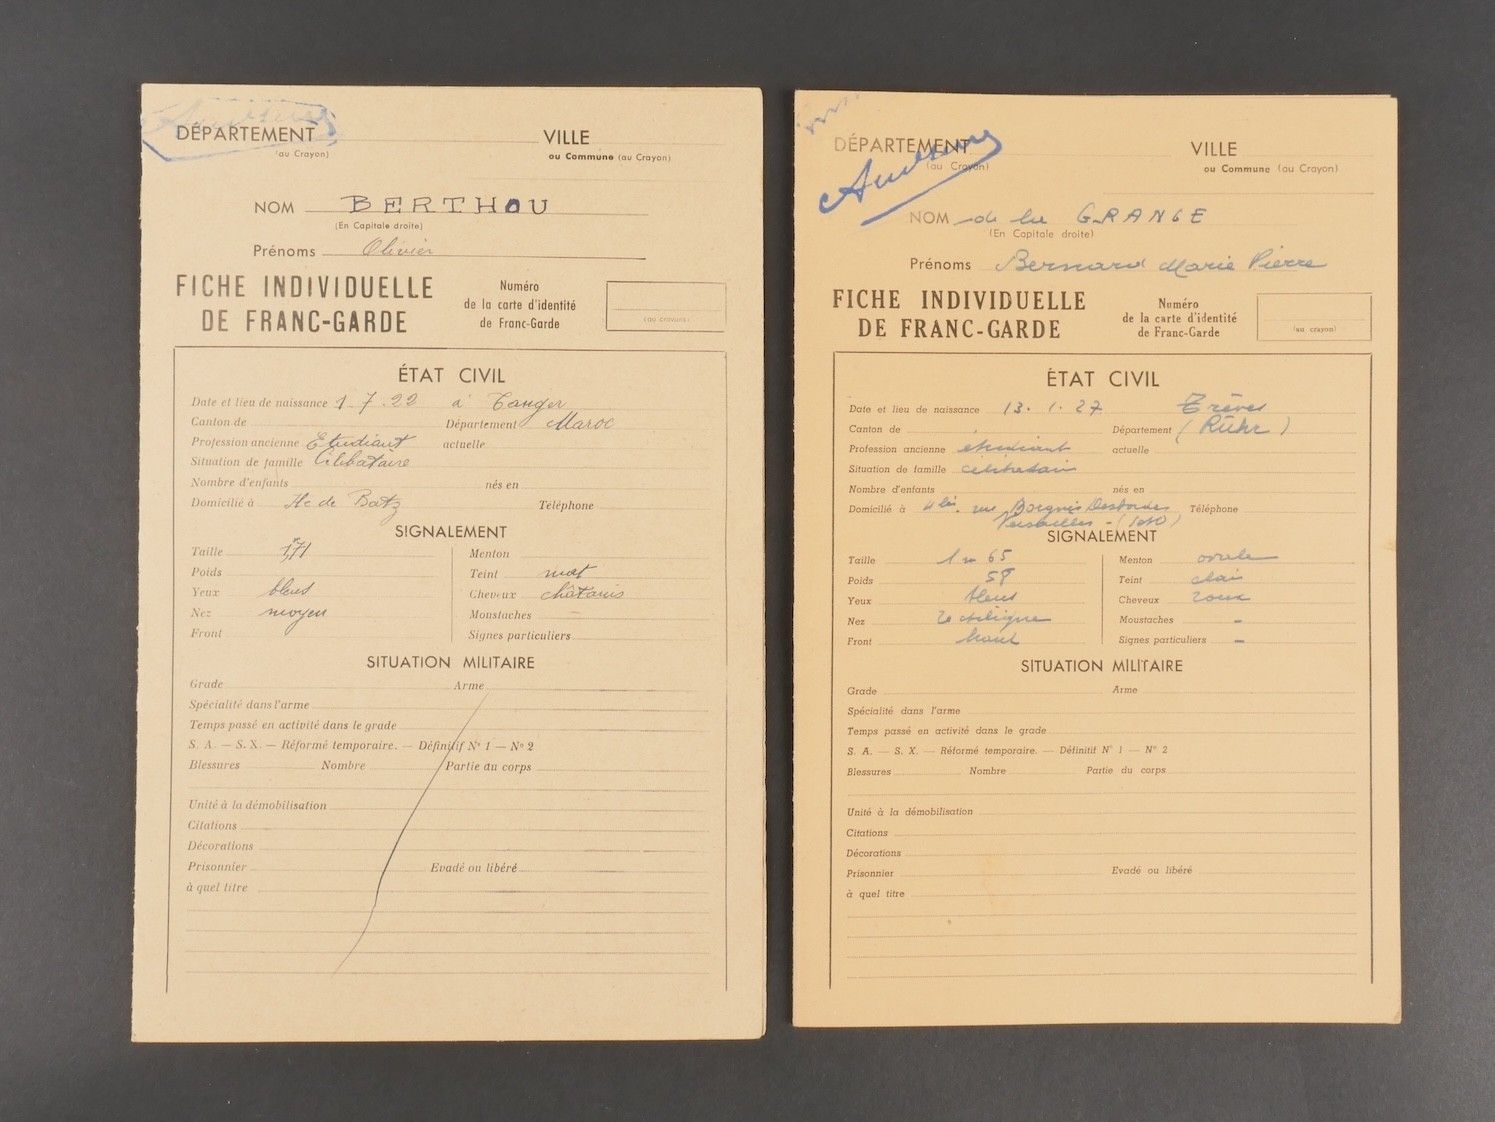 DÉPARTEMENT
(au Crayon)
VILLE
ou Commune (au Crayon)
NOM BERTHOU
(En Capitale droite)
Prénoms Olivier
FICHE INDIVIDUELLE
DE FRANC-GARDE
Numéro
de la carte d'identité
de Franc-Garde
(au crayon)
ÉTAT CIVIL
Date et lieu de naissance 1.7.22 à Tanger
Canton de Département Maroc
Profession ancienne Etudiant actuelle
Situation de famille Célibataire
Nombre d'enfants nés en
Domicilié à Ile de Batz Téléphone
SIGNALEMENT
Taille 1,71 Menton
Poids Teint mat
Yeux bleus Cheveux châtains
Nez moyen Moustaches –
Front Signes particuliers
SITUATION MILITAIRE
Grade Arme
Spécialité dans l'arme
Temps passé en activité dans le grade
S. A. — S. X. — Réformé temporaire. — Définitif N° 1 — N° 2
Blessures Nombre Partie du corps
Unité à la démobilisation
Citations
Décorations
Prisonnier Evadé ou libéré
à quel titre
DÉPARTEMENT
(au Crayon)
VILLE
ou Commune (au Crayon)
NOM de la GRANGE
(En Capitale droite)
Prénoms Bernard Marie Pierre
FICHE INDIVIDUELLE
DE FRANC-GARDE
Numéro
de la carte d'identité
de Franc-Garde
(au crayon)
ÉTAT CIVIL
Date et lieu de naissance 13.1.27 Trèves
Canton de Département (Rühr)
Profession ancienne étudiant actuelle
Situation de famille
Nombre d'enfants nés en
Domicilié à rue Borgnis Desbordes Téléphone
Versailles
SIGNALEMENT
Taille 1m65 Menton ovale
Poids 58 Teint clair
Yeux bleus Cheveux roux
Nez rectiligne Moustaches –
Front haut Signes particuliers –
SITUATION MILITAIRE
Grade Arme
Spécialité dans l'arme
Temps passé en activité dans le grade
S. A. — S. X. — Réformé temporaire. — Définitif N° 1 — N° 2
Blessures Nombre Partie du corps
Unité à la démobilisation
Citations
Décorations
Prisonnier Evadé ou libéré
à quel titre